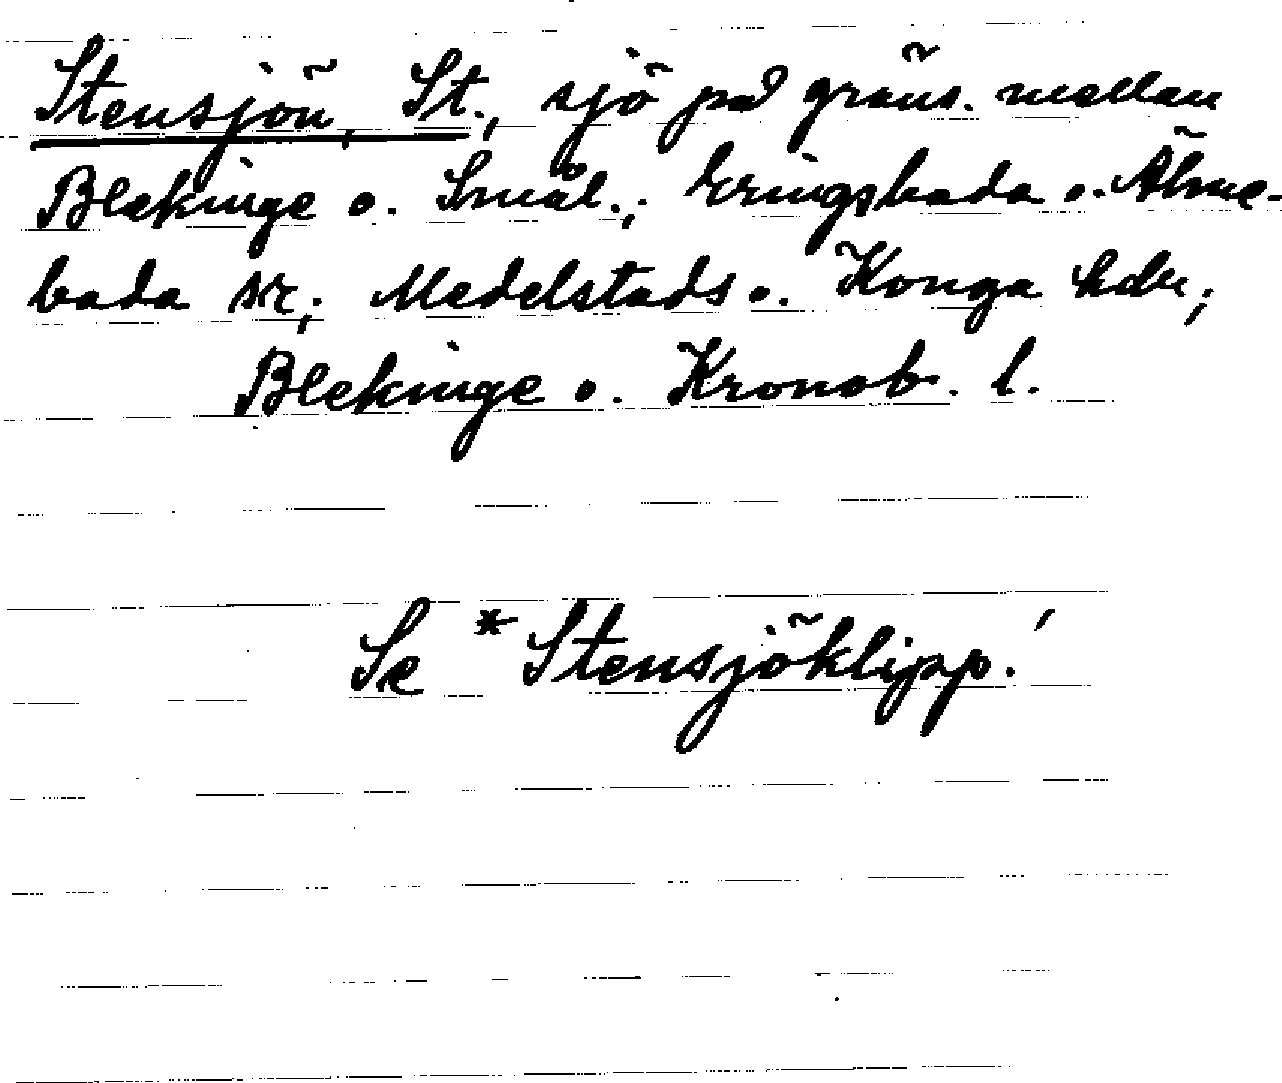 Stensjön, St., sjö på gräns. mellan
Blekinge o. Smål.; Eringsboda o. Älme-
boda sr; Medelstads o. Konga hdr;
Blekinge o. Kronob. l.
Se *Stensjöklipp.!